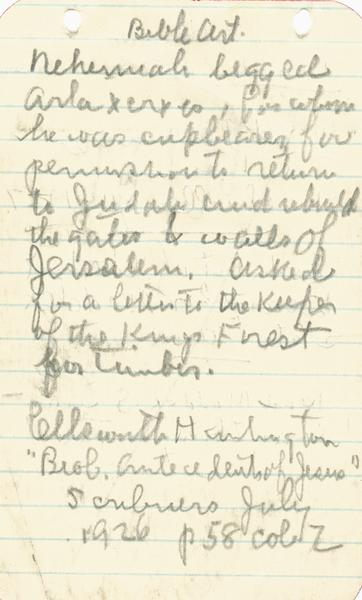 Bible Art.
Nehemiah begged
Artaxerxes, for whom
he was cupbearer, for
permission to return
to Judah and rebuild
the gates & walls of
Jersalem. asked
for a letter to the Keeper
of the Kings Forest
for timber.
Ellsworth Huntington
"Biol. Antecedents of Jesus"
Scribners July
1926 p 58 col. 2